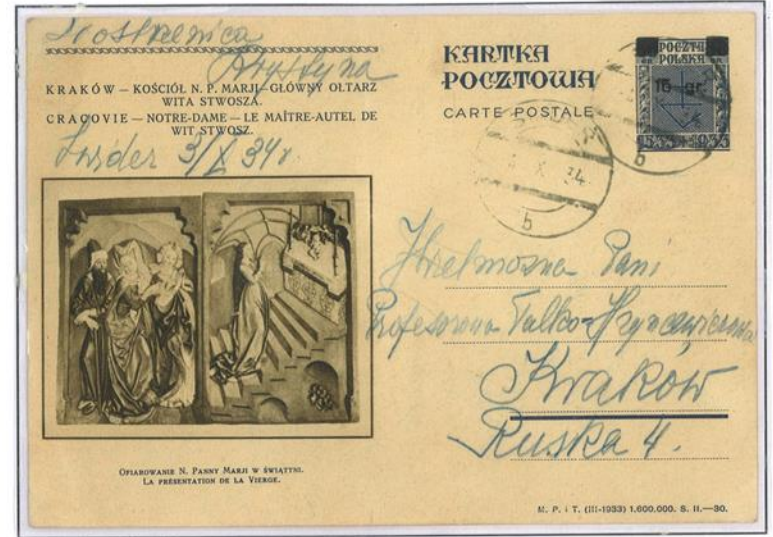 Krystyna
KRAKÓW — KOŚCIÓŁ N. P. MARJI—GŁÓWNY OŁTARZ
WITA STWOSZA.
CRACOVIE — NOTRE-DAME — LE MAÎTRE-AUTEL DE
WIT STWOSZ.
Świder 3/X 34 r.
OFIAROWANIE N. PANNY MARJI W ŚWIĄTYNI.
LA PRÉSENTATION DE LA VIERGE.
KARTKA
POCZTOWA
CARTE POSTALE
POCZTA
POLSKA
15 gr.
1533 + 1933
X 34
b
b
Wielmożna Pani
Profesorowa Talko-Hryncewiczowa
Kraków
Ruska 4.
M. P. i T. (III-1933) 1.600.000. S. II.—30.